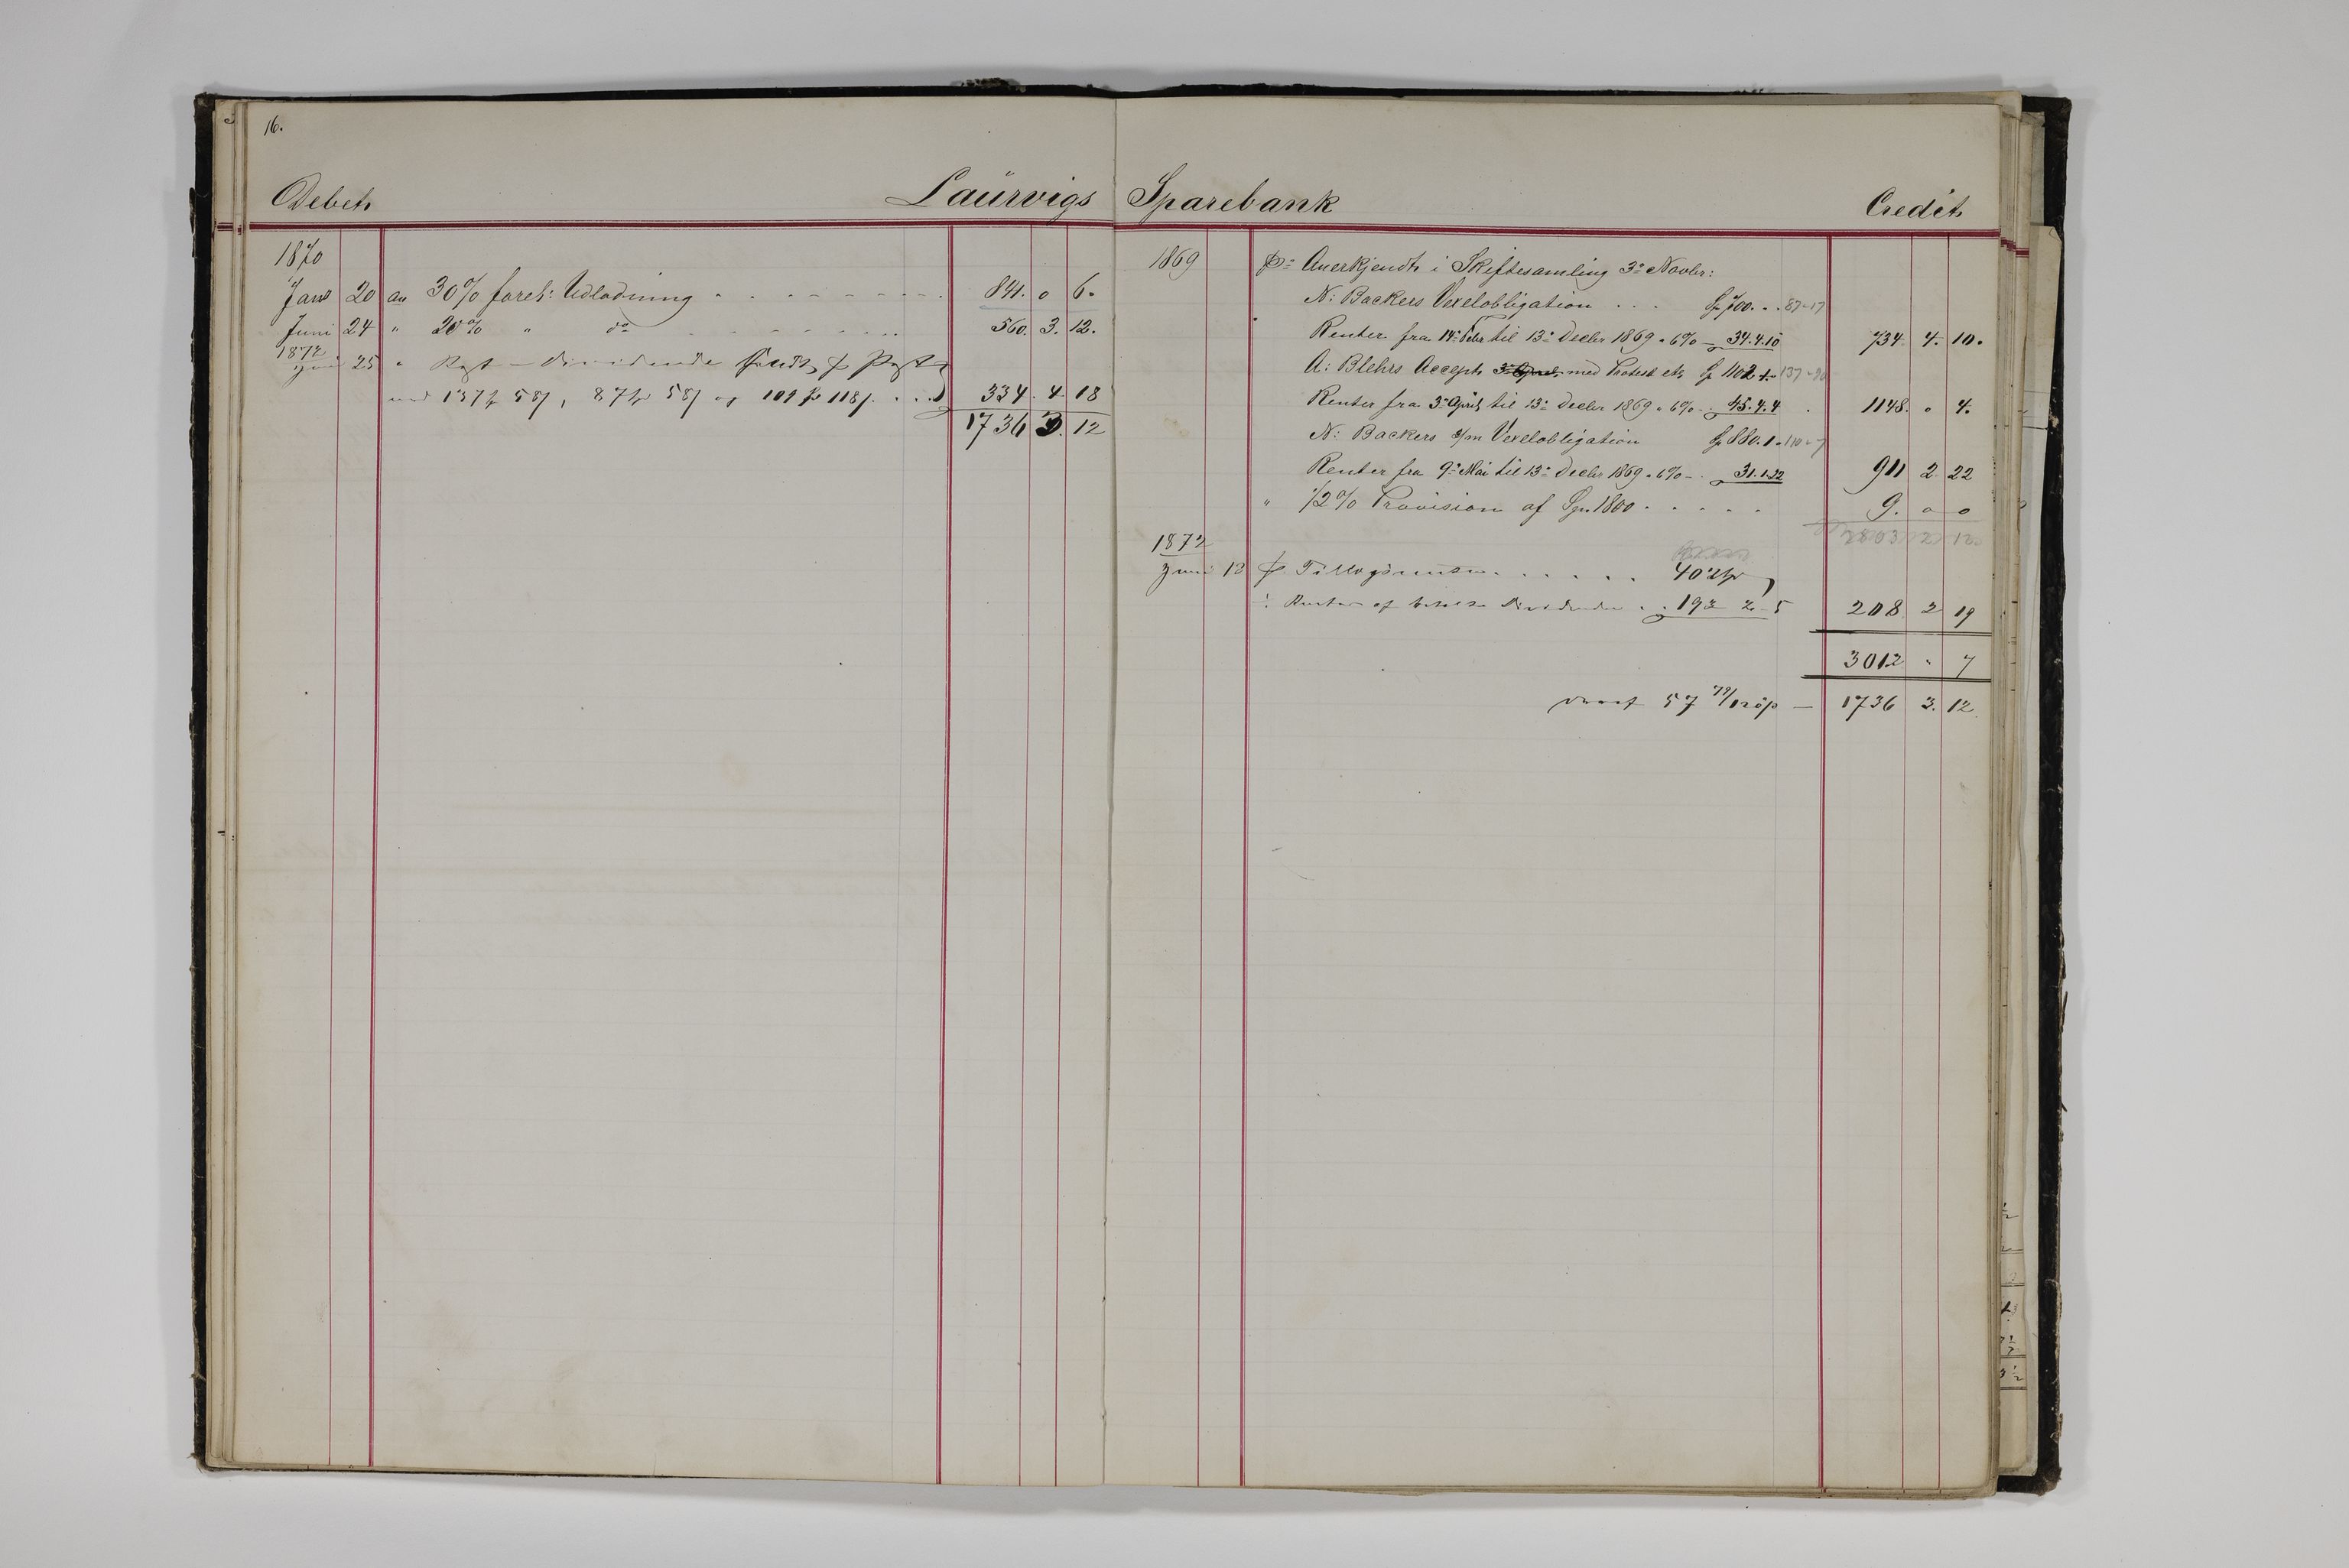 16.
Debet Laürvigs Sparebank Credit
1870
Janr 20 an 30% forel: Udlodning 841. 0 6.
Juni 24 " 20% " do 560. 3. 12.
1872
Juni 25 " Rest-Dividende sendt pr Post
med 137 58, 87 58 og 109 118 334. 4. 18
1736 3. 12
1869 Pr Anerkjendt i Skiftesamling 3. Novbr:
N: Backers Vexelobligation Sp 700. 87-17
Renter fra 14. Febr til 13. Decbr 1869 a 6% 34.4.10 734 4. 10.
A: Blehrs Accept med Protest etc Sp 1102.1. 137-90
Renter fra 3. April til 13. Decbr 1869 a 6% 45.4.4 1148. 0 4.
N: Backers Vexelobligation Sp 880.1. 110-7
Renter fra 9. Mai til 13. Decbr 1869 a 6% 31.1.22 911 2 22
" 1/2% Provision af Spd. 1800 9. 0 0
2803 2 12
1872
Juni 18 pr Tillægsrenter 402
÷ Renter af Dividender 193 2 5 208 2 19
3012 " 7
57 79/120 p — 1736 3. 12